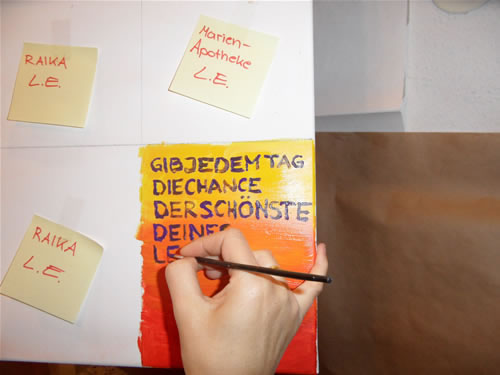 RAIKA
L.E.
Marien-
Apotheke
L.E.
GIB JEDEM TAG
DIE CHANCE
DER SCHÖNSTE
RAIKA
L.E.